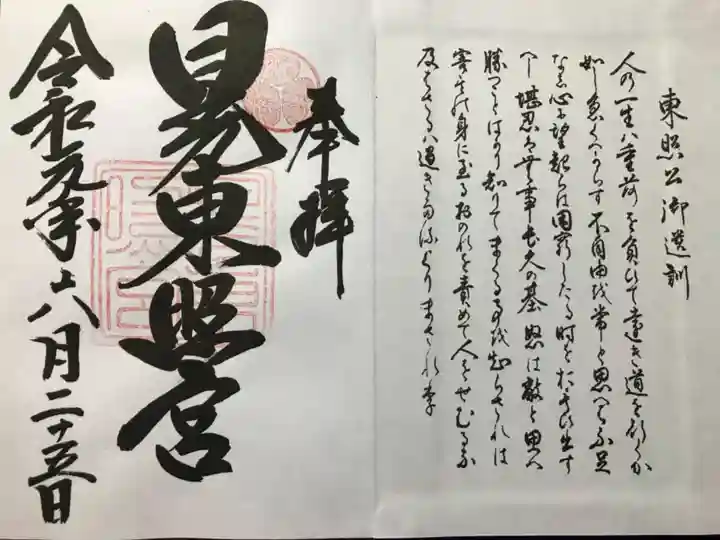 奉拝
日光東照宮
令和元年八月二十五日
東照公御遺訓
人の一生ハ重荷を負ひて遠き道を行くか
如し急くへからす不自由を常と思へは不足
なし心に望起らは困窮したる時を おもひ出す
へし堪忍は無事長久の基 怒は敵と思へ
勝つことはかり知りてまくる事を知らされは
害其の身に至るおのれを責めて人をせむるな
及はさるハ過きたるよりまされり